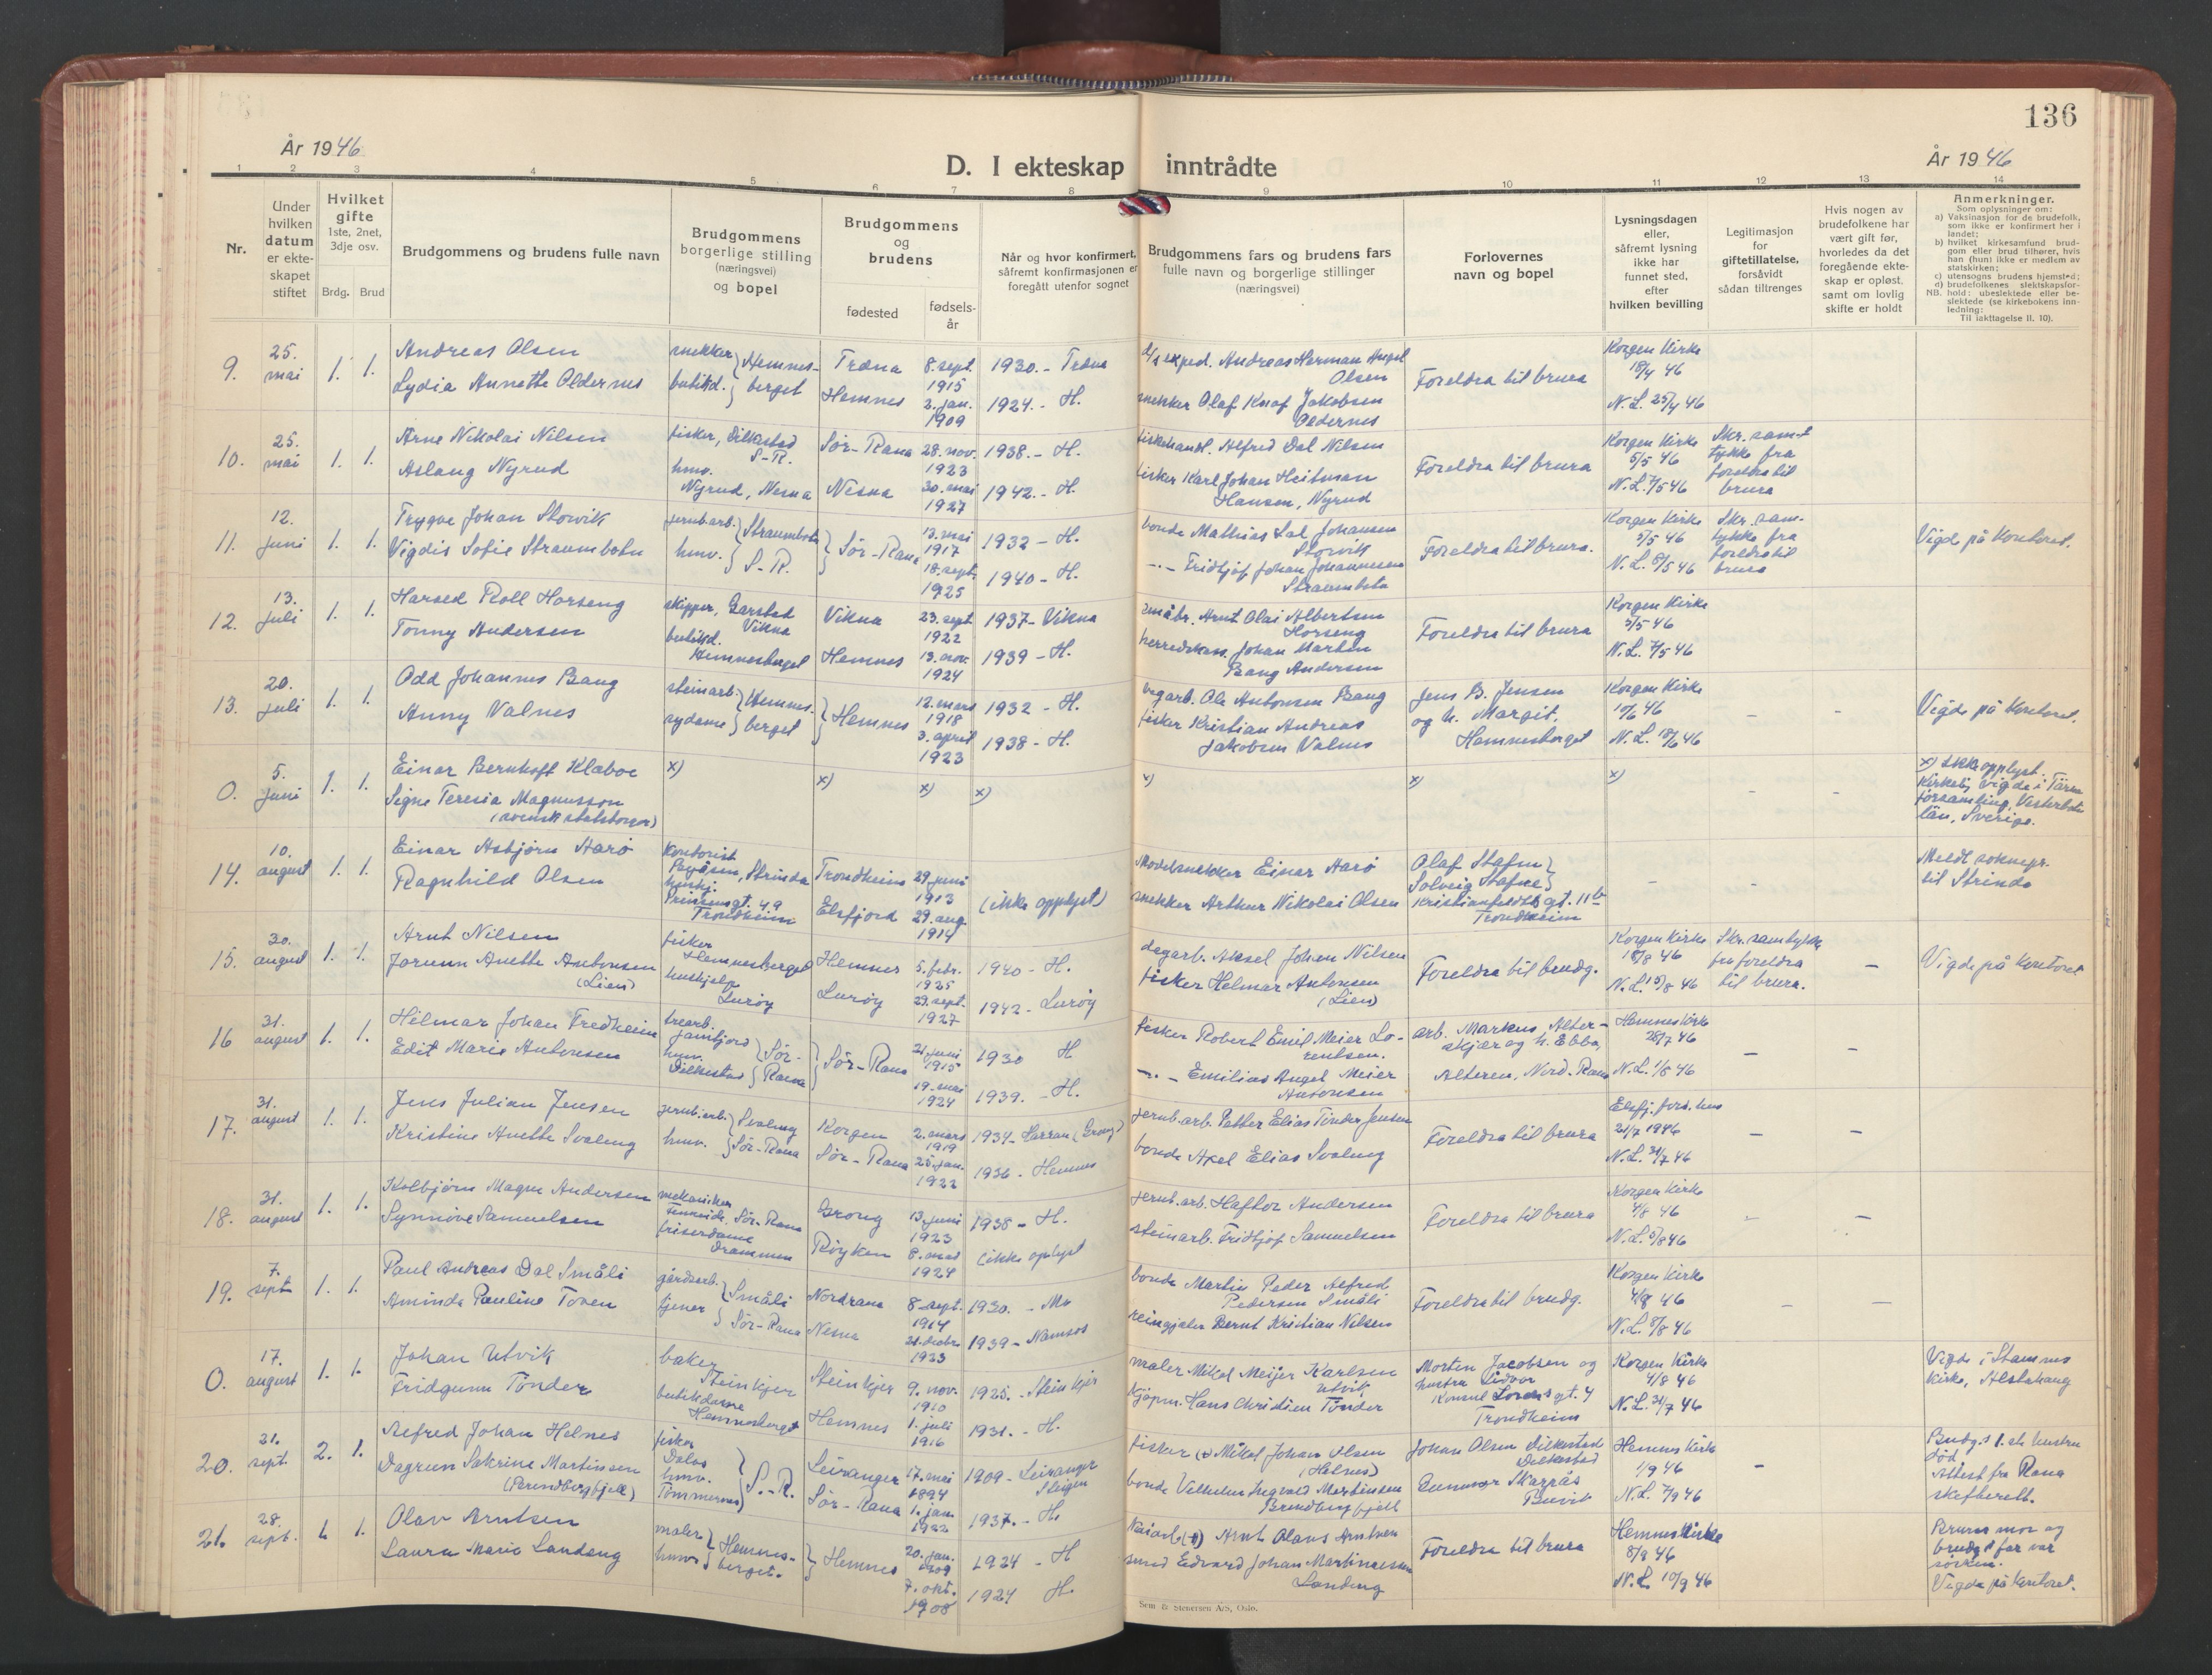 136
År 1946
D. I ekteskap inntrådte
År 1946
1 2 3 4 5 6 7 8 9 10 11 12 13 14
Nr.
Under
hvilken
datum
er ekte-
skapet
stiftet
Hvilket
gifte
1ste, 2net,
3dje osv.
Brdg. Brud
Brudgommens og brudens fulle navn
Brudgommens
borgerlige stilling
(næringsvei)
og bopel
Brudgommens
og
brudens
fødested
fødsels-
år
Når og hvor konfirmert,
såfremt konfirmasjonen er
foregått utenfor sognet
Brudgommens fars og brudens fars
fulle navn og borgerlige stillinger
(næringsvei)
Forlovernes
navn og bopel
Lysningsdagen
eller,
såfremt lysning
ikke har
funnet sted,
efter
hvilken bevilling
Legitimasjon
for
giftetillatelse,
forsåvidt
sådan tiltrenges
Hvis nogen av
brudefolkene har
vært gift før,
hvorledes da det
foregående ekte-
skap er opløst,
samt om lovlig
skifte er holdt
Anmerkninger.
Som oplysninger om:
a) Vaksinasjon for de brudefolk,
som ikke er konfirmert her i
landet;
b) hvilket kirkesamfund brud-
gom eller brud tilhører, hvis
han (hun) ikke er medlem av
statskirken;
c) utensogns brudens hjemsted;
d) brudefolkenes slektskapsfor-
NB. hold: ubeslektede eller be-
slektede (se kirkebokens inn-
ledning:
Til iakttagelse II. 10).
9.
25.
mai
1. 1.
Andreas Olsen
Lydia Annette Oldernes
snekker
butikkd.
Hemnes-
berget
Træna
Hemnes
8. sept.
1915
2. jan.
1909
1930. - Træna
1924. - H.
d/s exped. Andreas Herman Angel
Olsen
snekker Olaf Knof Jakobsen
Oldernes
Foreldra til brura
Korgen Kirke
18/4 46
N.L. 25/4 46
10.
25.
mai
1. 1.
Arne Nikolai Nilsen
Aslaug Nyrud
fisker, Dilkestad
S-R.
hmv.
Nyrud, Nesna
Sør-Rana
Nesna
28. nov.
1923
30. mai
1927
1938. - H.
1942. - H.
fiskehandl. Alfred Dal Nilsen
fisker Karl Johan Heitman
Hansen, Nyrud
Foreldra til brura
Korgen Kirke
5/5 46
N.L. 7/5 46
Skr. sam-
tykke fra
foreldra til
brura
11.
12.
juni
1. 1.
Trygve Johan Storvik
Vigdis Sofie Straumbotn
jernb.arb.
hmv.
Straumbotn
S-R.
Sør-Rana
13. mai
1917
18. sept.
1925
1932 - H.
1940 - H.
bonde Mathias Sal Johansen
Storvik
-.- Fridtjof Johan Johannesen
Straumbotn
Foreldra til brura.
Korgen Kirke
5/5 46
N.L. 8/5 46
Skr. sam-
tykke fra
foreldra til
brura
Vigde på kontoret.
12.
13.
juli
1. 1.
Harsed Roll Horseng
Tonny Andersen
skipper, Garstad
Vikna
butikkd.
Hemnesberget
Vikna
Hemnes
23. sept.
1922
13. nov.
1924
1937 - Vikna
1939 - H.
småbr. Arnt Olai Albertsen
Horseng
herredskass. Johan Martin
Bang Andersen
Foreldra til brura
Korgen Kirke
5/5 46
N.L. 7/5 46
13.
20.
juli
1. 1.
Odd Johannes Bang
Anny Valnes
steinarb.
sydame
Hemnes-
berget
Hemnes
12. mars
1918
3. april
1923
1932 - H.
1938 - H.
vegarb. Ole Antonsen Bang
fisker Kristian Andreas
Jakobsen Valnes
Jens B. Jensen
og h. Margit.
Hemnesberget
Korgen Kirke
10/6 46
N.L. 18/6 46
- -
Vigde på kontoret.
0.
5.
juni
1. 1.
Einar Bernhoft Klæboe
Signe Teresia Magnusson
(svensk statsborger)
x) x) x) x) x) x) x)
- -
x) Ikke opplyst.
Kirkelig vigde i Tärna
församling, Vesterbotn
län, Sverige.
14.
10.
august
1. 1.
Einar Asbjørn Aarö
Ragnhild Olsen
kontorist
Strinda
Prinsensgt. 49
Trondheim
Trondheim
Elsfjord
29. juni
1913
29. aug.
1914
(ikke opplyst)
modelsnekker Einar Aarö
snekker Arthur Nikolai Olsen
Olaf Stafne
Solveig Stafne
Kristianfeldtsgt. 11b
Trondheim
- -
Meldt soknepr.
til Strinda
15.
30.
august
1. 1.
Arnt Nilsen
Jorunn Anette Antonsen
(Lien)
fisker
Hemnesberget
huskjelp
Lurøy
Hemnes
Lurøy
5. febr.
1925
29. sept.
1927
1940 - H.
1942 - Lurøy
dagarb. Aksel Johan Nilsen
fisker Helmar Antonsen
(Lien)
Foreldra til brudg.
Korgen Kirke
18/8 46
N.L. 15/8 46
Skr. samtykke
fra foreldra
til brura.
-
Vigde på kontoret
16
31.
august
1. 1.
Hilmar Johan Fredheim
Edit Marie Antonsen
trearb.
hmv.
Dilkestad
Sør-
Rana
Sør-Rana
21. juni
1915
19. mai
1924
1930 H
1939. - H.
fisker Robert Emil Meier Lo-
rentsen.
-.- Emilius Angel Meier
Antonsen
arb. Markus Alter-
skjær og h. Ebba,
Alteren, Nord-Rana
Hemnes Kirke
28/7 46
N.L. 1/8 46
- -
17.
31.
august
1. 1.
Jens Julian Jensen
Kristine Anette Svaleng
jernb.arb.
hmv.
Svaleng
Sør-Rana
Korgen
Sør-Rana
2. mars
1919
25. jan.
1922
1934 - Harran (Grong)
1936 - Hemnes
jernb.arb. Petter Elias Tinder Jensen
bonde Axel Elias Svaleng
Foreldra til brura
Elsfj. fors.hus
21/7 1946
N.L. 31/7 46
- -
18.
31.
august
1. 1.
Kolbjørn Magne Andersen
Synnøve Samuelsen
mekaniker
Finneidf., Sør-Rana
friserdame
Drammen
Grong
Røyken
13. juni
1923
8. mai
1924
1938 - H.
(ikke oplyst
jernb.arb. Haftor Andersen
steinarb. Fridtjof Samuelsen
Foreldra til brura
Korgen Kirke
4/8 46
N.L. 5/8 46
- -
19.
7.
sept
1. 1.
Paul Andreas Dal Småli
Aminda Pauline Toven
gårdsarb.
tjener
Småli
Sør-Rana
Nordrana
Nesna
8. sept.
1914
21. decbr.
1923
1930. - Mo
1939 - Namsos
bonde Martin Peder Alfred
Pedersen Småli
reingjeter Bernt Kristian Nilsen
Foreldra til brudg.
Korgen Kirke
4/8 46
N.L. 8/8 46
- -
0.
17.
august
1. 1.
Johan Utvik
Fridgunn Tönder
baker
Steinkjer
butikdame
Hemnesberget
Steinkjer
Hemnes
9. nov.
1910
1. juli
1916
1925. - Steinkjer
1931. - H.
maler Mikal Meijer Karlsen
Utvik
Kjøpm. Hans Christien Tönder
Morten Jacobsen og
hustru Lidvor
Konsul Lorcks gt. 4
Trondheim
Korgen Kirke
4/8 46
N.L. 31/7 46
Vigde i Stamnes
kirke, Alstahaug
20.
21.
sept.
2. 1.
Alfred Johan Helnes
Dagrun Sakrine Martinsen
(Brendbergfjell)
fisker
Dalos
hmv.
Tömmernes
S.-R.
Leiranger
Sør-Rana
17. mai
1894
1. jan.
1922
1909 - Leiranger
Steigen
1937. - H.
fisker (+) Mikal Johan Olsen
(Helnes)
bonde Vilhelm Ingvald Martinsen
Brendbergfjell
Johan Olsen Dilkestad
Dilkestad
Gunnar Skarrås
Buvik
Hemnes Kirke
1/9 46
N.L. 7/9 46
-
Brudg.s 1. ste hustru
död.
Attest fra Rana
skifterett.
21.
28.
sept.
1. 1.
Olav Arntsen
Laura Marie Landeng
maler
hmv.
Hemnes-
berget.
Hemnes
20. jan.
1909
7. okt.
1908
1924 - H
1924 H.
Kaiarb. (+) Arnt Olaus Arntsen
smed Edvard Johan Martinussen
Landeng
Foreldra til brura
Hemnes Kirke
8/9 46
N.L. 10/9 46
Bruras mor og
brudg.s far var
søsken.
Vigde på kontoret.
Sem & Stenersen A/S, Oslo.